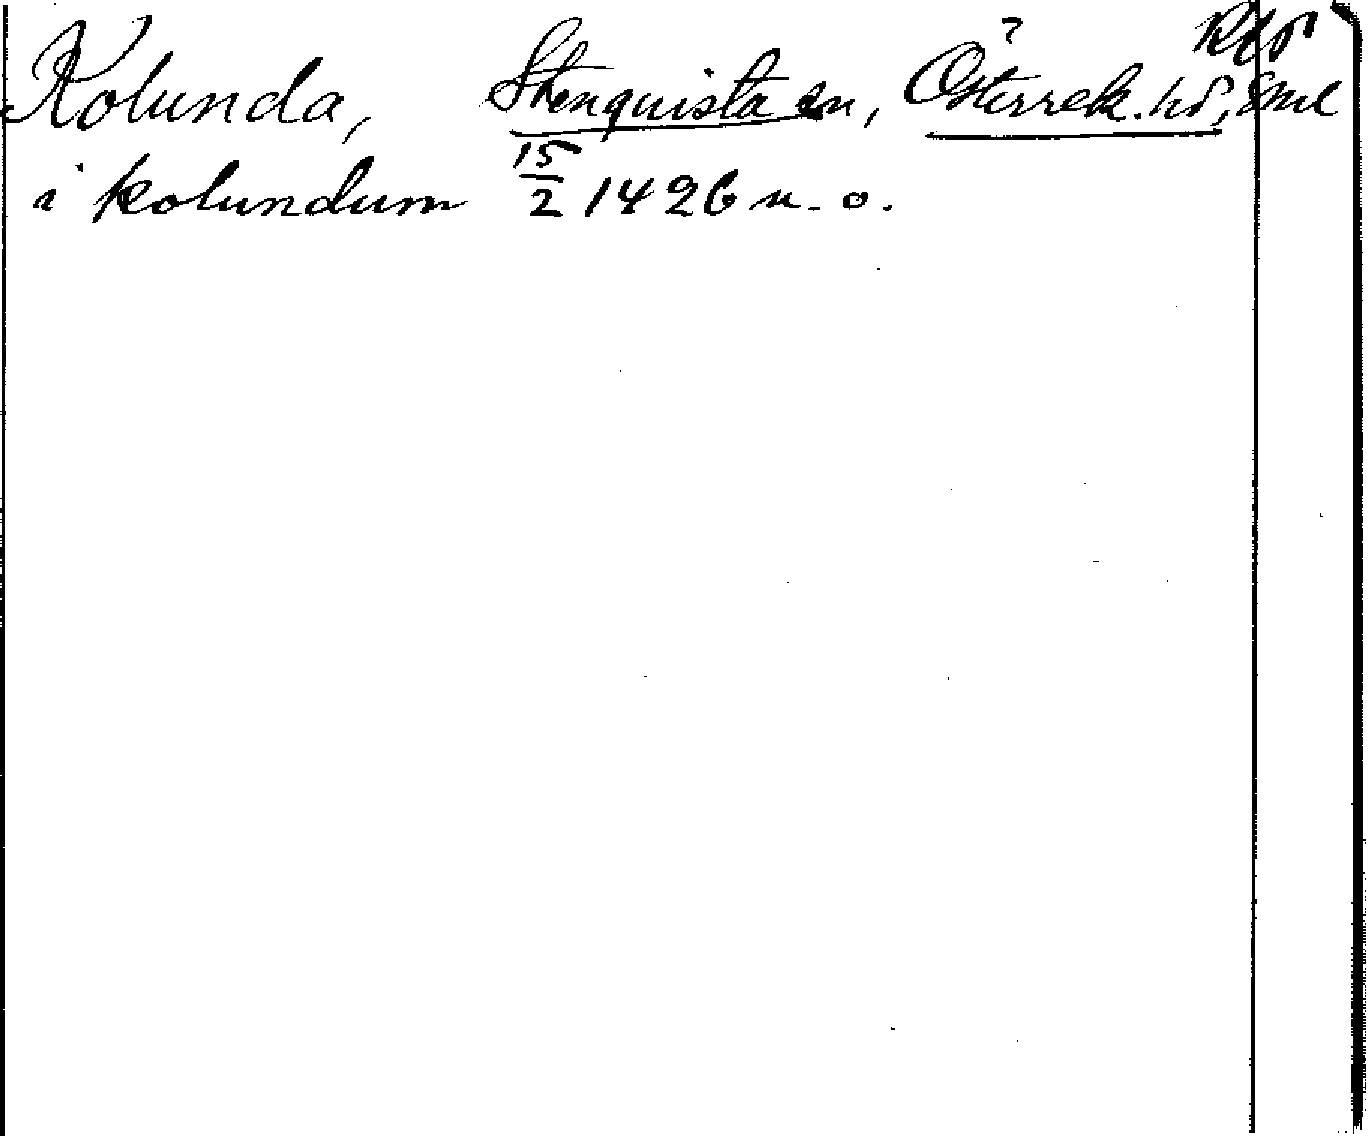 ?
Kolunda, Stenquista sn, Österrek. hd, Sml
i kolundum 15/2 1426 n. o.